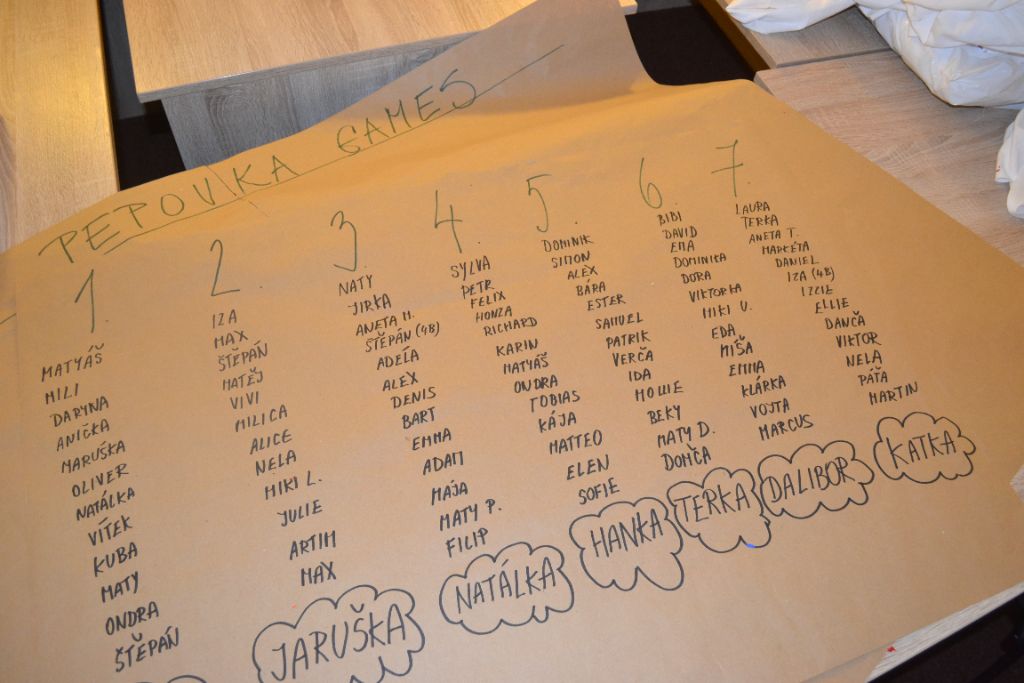 PEPOVKA GAMES
1.
MATYÁŠ
MILI
DARYNA
ANIČKA
MARUŠKA
OLIVER
NATÁLKA
VÍTEK
KUBA
MATY
ONDRA
ŠTĚPÁN
2.
IZA
MAX
ŠTĚPÁN
MATĚJ
VIVI
MILICA
ALICE
NELA
MIKI L.
JULIE
ARTIM
MAX
JARUŠKA
3.
NATY
JIRKA
ANETA M.
ŠTĚPÁN (4B)
ADÉLA
ALEX
DENIS
BART
EMMA
ADAM
MAJA
MATY P.
FILIP
NATÁLKA
4.
SYLVA
PETR
FELIX
HONZA
RICHARD
KARIN
MATYÁŠ
ONDRA
TOBIAS
KÁJA
MATTEO
ELEN
SOFIE
HANKA
5.
DOMINIK
SIMON
ALEX
BÁRA
ESTER
SAMUEL
PATRIK
VERČA
IDA
MOLLIE
BEKY
MATY D.
DOMČA
TERKA
6.
BIBI
DAVID
EMA
DOMINIKA
DORA
VIKTORKA
MIKI V.
EDA
MÍŠA
EMMA
KLÁRKA
VOJTA
MARCUS
DALIBOR
7.
LAURA
TERKA
ANETA T.
MARKÉTA
DANIEL
IZA (4B)
IZZIE
ELLIE
DANČA
VIKTOR
NELA
PÁŤA
MARTIN
KATKA